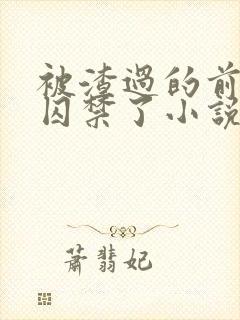 被渣過的前
囚禁了小說
蕭翡妃